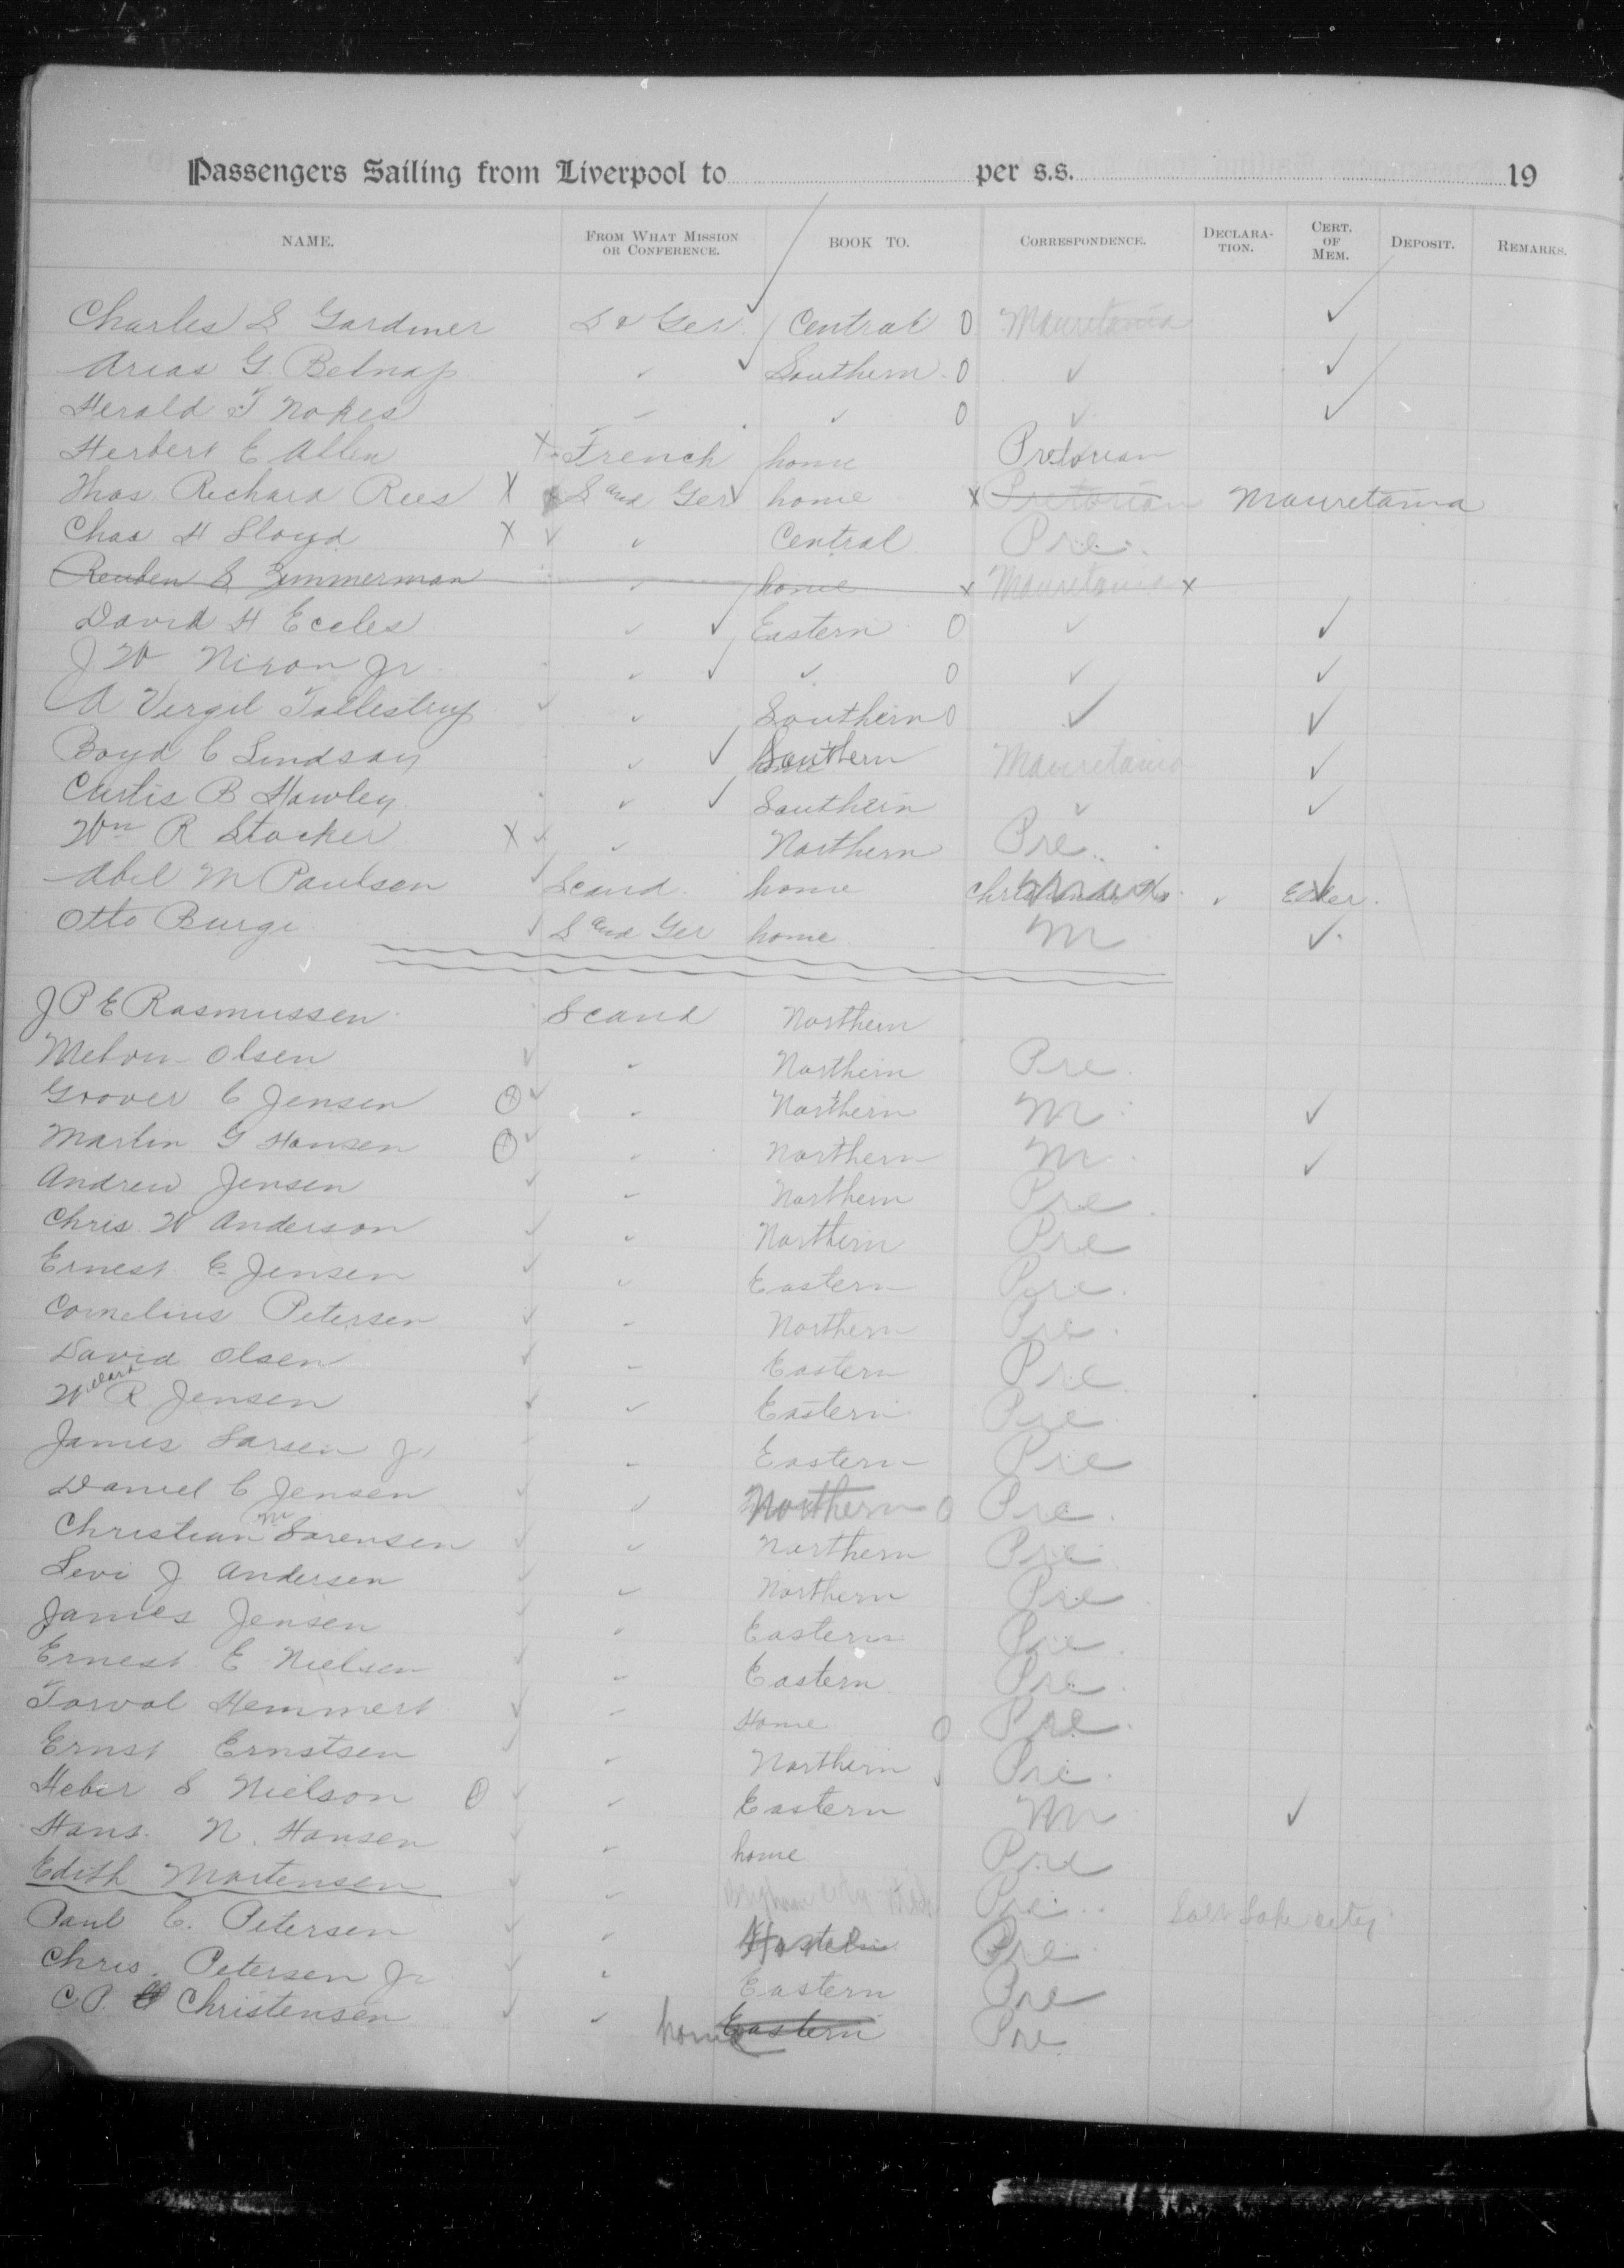 Passengers Sailing from Liverpool to per s.s. 19
NAME. FROM WHAT MISSION OR CONFERENCE. BOOK TO. CORRESPONDENCE. DECLARATION. CERT. OF MEM. DEPOSIT. REMARKS.
Charles S Gardiner S & Ger. Central O Mauretania ✓
Arias G. Belnap ✓ Southern O ✓ ✓
Herald T Nokes ✓ ✓ O ✓ ✓
Herbert E Allen X French home Pretorian
Thos. Richard Rees X S and Ger ✓ home x Pretorian Mauretania
Chas H Lloyd X ✓ ✓ Central Pre.
Reuben S Zimmerman ✓ home x Mauretania x
David H Eccles ✓ ✓ Eastern O ✓ ✓
J W Nixon Jr ✓ ✓ ✓ O ✓ ✓
A Vergil Tallestrup ✓ ✓ Southern O ✓ ✓
Boyd C Lindsay ✓ ✓ Southern Mauretania ✓
Curtis B Hawley ✓ ✓ Southern ✓ ✓
Wm R Stocker X ✓ ✓ Northern Pre.
Abel M Paulsen ✓ Scand. home ✓
Otto Burgi ✓ S and Ger home M ✓
J P E Rasmussen Scand Northern
Melvin Olsen ✓ ✓ Northern Pre.
Groover C Jensen ✓ ✓ Northern M ✓
Martin G Hansen ✓ ✓ Northern M ✓
Andrew Jensen ✓ ✓ Northern Pre
Chris. W Anderson ✓ ✓ Northern Pre
Ernest E Jensen ✓ ✓ Eastern Pre.
Cornelius Petersen ✓ ✓ Northern Pre.
David Olsen ✓ ✓ Eastern Pre
Willard R Jensen ✓ ✓ Eastern Pre
James Larsen Jr ✓ ✓ Eastern Pre
Daniel C Jensen ✓ ✓ Northern O Pre.
Christian M Sorensen ✓ ✓ Northern Pre
Levi J Andersen ✓ ✓ Northern Pre
James Jensen ✓ ✓ Eastern Pre.
Ernest E Nielsen ✓ ✓ Eastern Pre.
Torval Hemmert ✓ ✓ Home O Pre.
Ernst Ernstsen ✓ ✓ Northern Pre.
Heber S Nielson ✓ ✓ Eastern M ✓
Hans. N. Hansen ✓ ✓ home Pre
Edith Mortensen ✓ ✓ Brigham City Pre. Salt Lake City
Paul C. Petersen ✓ ✓ Pre
Chris. Petersen Jr ✓ ✓ Eastern Pre
C. P. Christensen ✓ ✓ home Eastern Pre